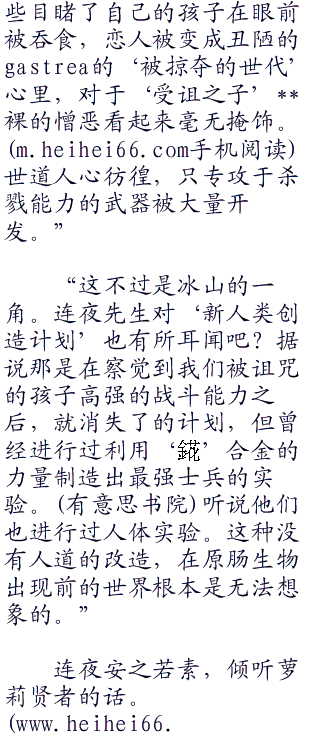 些目睹了自己的孩子在眼前
被吞食，恋人被变成丑陋的
gastrea的‘被掠夺的世代’
心里，对于‘受诅之子’**
裸的憎恶看起来毫无掩饰。
(m.heihei66.com手机阅读)
世道人心彷徨，只专攻于杀
戮能力的武器被大量开
发。”
“这不过是冰山的一
角。连夜先生对‘新人类创
造计划’也有所耳闻吧？据
说那是在察觉到我们被诅咒
的孩子高强的战斗能力之
后，就消失了的计划，但曾
经进行过利用‘錵’合金的
力量制造出最强士兵的实
验。(有意思书院)听说他们
也进行过人体实验。这种没
有人道的改造，在原肠生物
出现前的世界根本是无法想
象的。”
连夜安之若素，倾听萝
莉贤者的话。
(www.heihei66.